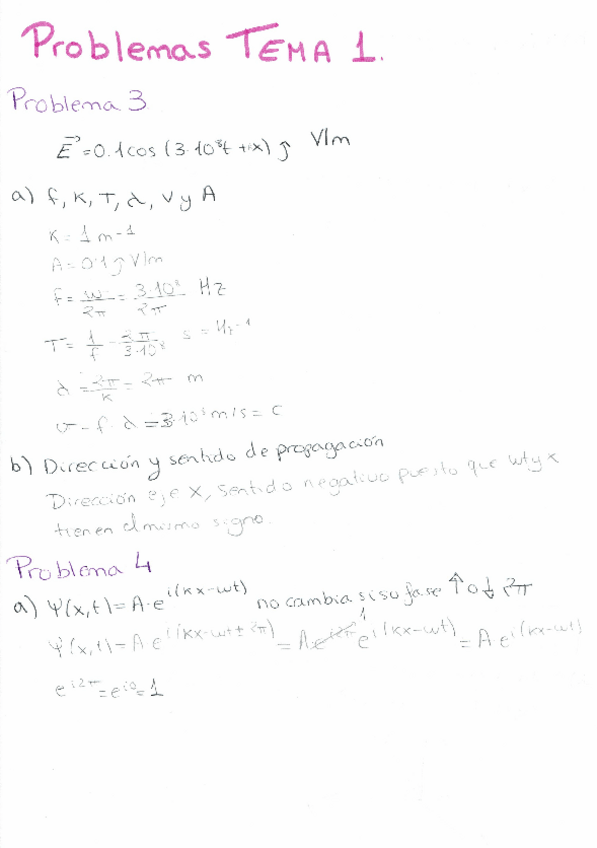 Problemas TEMA 1.
Problema 3
E⃗ = 0.1cos (3·10⁸t + x) ĵ V/m
a) f, K, T, λ, v y A
K = 1 m⁻¹
A = 0'1 ĵ V/m
f = w/2π = 3·10⁸/2π Hz
T = 1/f = 2π/3·10⁸ s = Hz⁻¹
λ = 2π/K = 2π m
v = f·λ = 3·10⁸ m/s = c
b) Dirección y sentido de propagación
Dirección eje X, sentido negativo puesto que wt y x
tienen el mismo signo.
Problema 4
a) Ψ(x,t) = A·e^i(kx-wt) no cambia si su fase ↑ o ↓ 2π
Ψ(x,t) = A e^i(kx-wt±2π) = A e^i2π 1 e^i(kx-wt) = A e^i(kx-wt)
e^i2π = e^i0 = 1